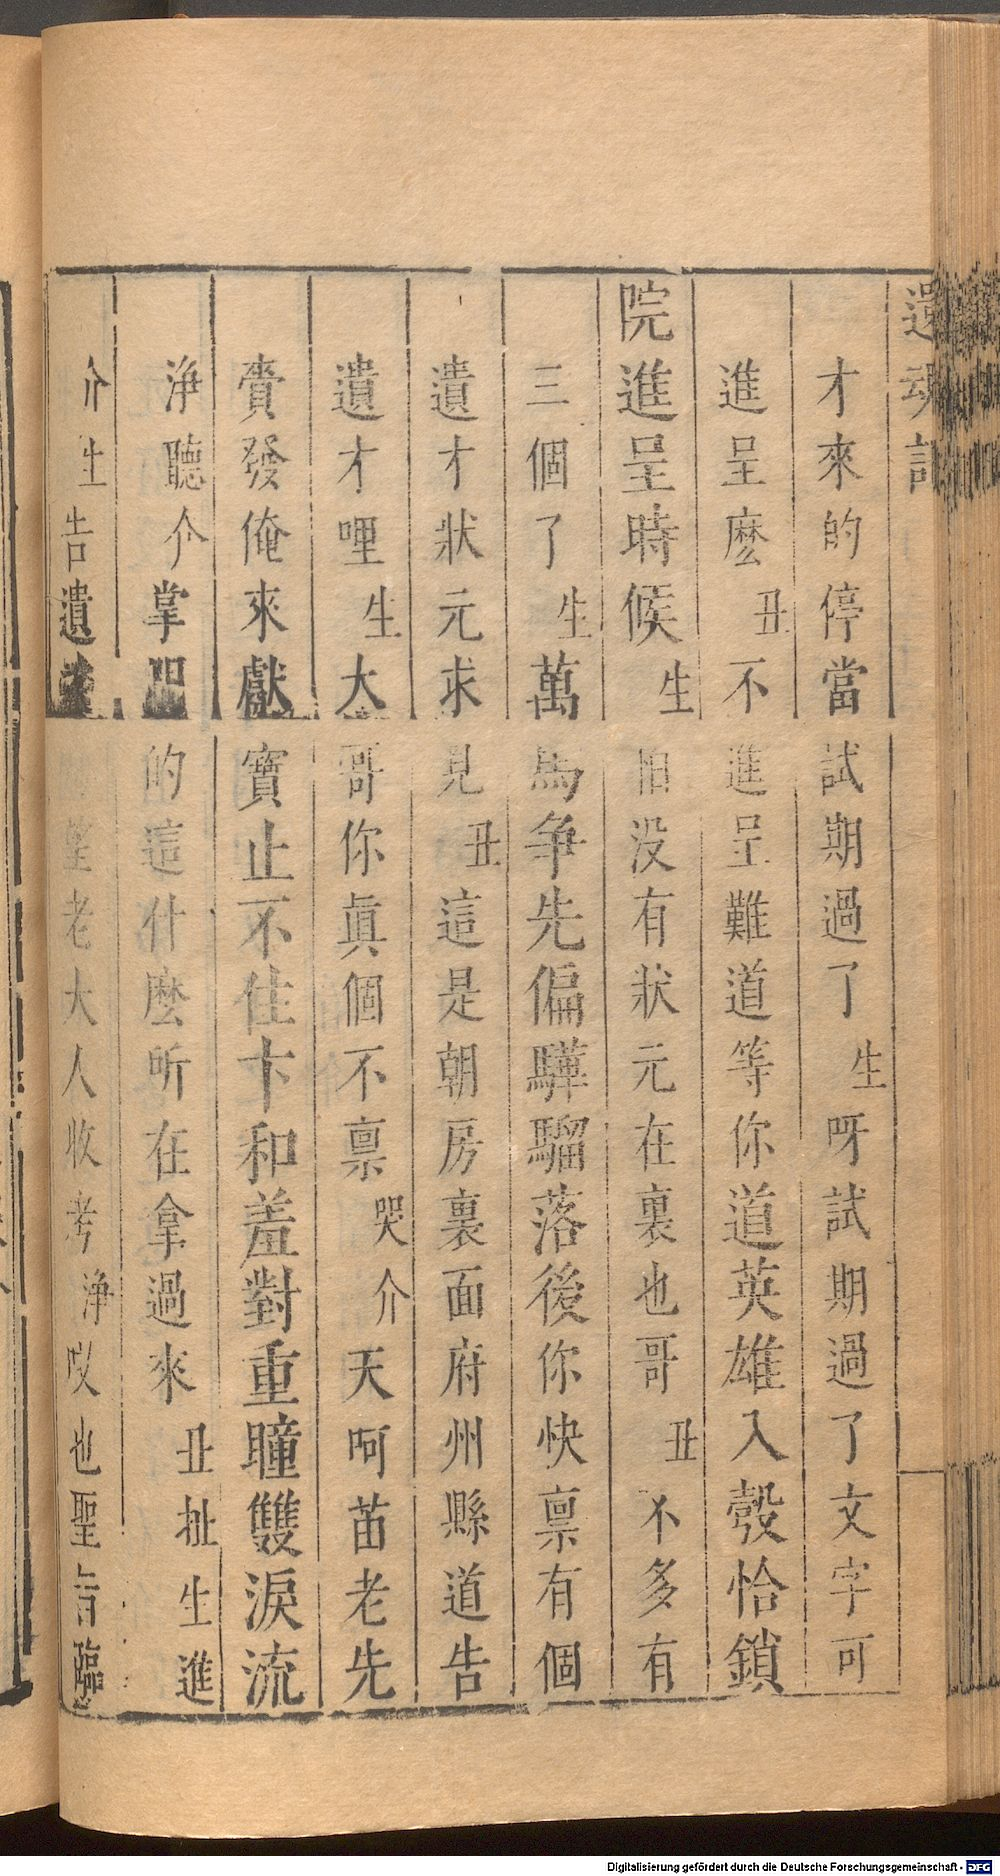 還魂記
才來的停當試期過了生呀試期過了文字可
進呈麽丑不進呈難道等你道英雄入彀恰鎖
院進呈時候生怕没有狀元在裏也哥丑不多有
三個了生萬馬爭先偏驊騮落後你快禀有個
遺才狀元求見丑這是朝房裏面府州縣道告
遺才哩生大哥你眞個不禀哭介天呵苗老先
賫發俺來獻寶止不住卞和羞對重瞳雙淚流
淨聽介掌門的這什麽所在拿過來丑扯生進
介生告遺才的望老大人收考淨哎也聖旨臨
Digitalisierung gefördert durch die Deutsche Forschungsgemeinschaft - DFG